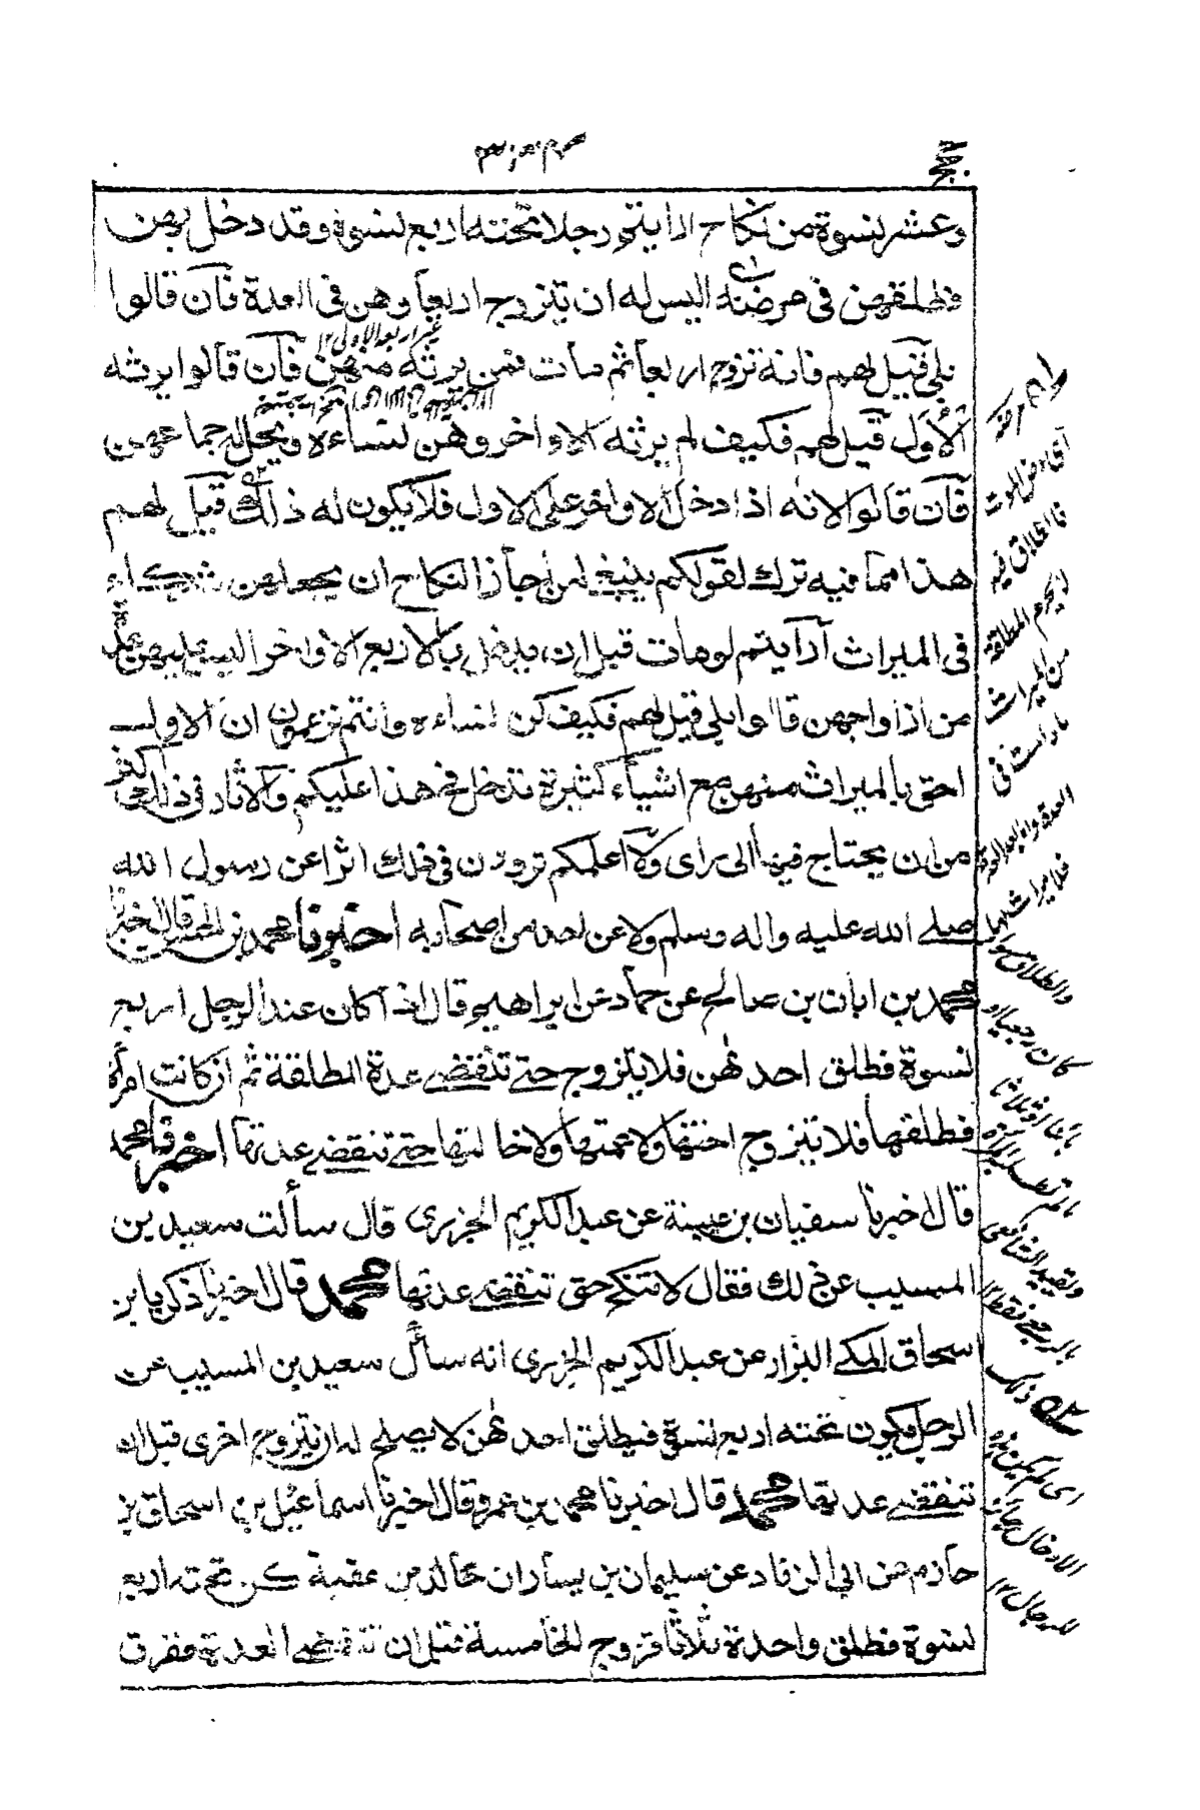 وعشر نسوة من نكاح ارأيتم رجلا تحته اربع نسوة وقد دخل بهن
فطلقهن في مرضه اليس له ان يتزوج اربعا وهن في العدة فان قالوا
بلى قيل لهم فانه تزوج اربعا ثم مات فمن يرثه منهن فان قالوا يرثه
الأول قيل لهم فكيف لم يرثه الاواخر وهن نساءه ويحل له جماعهن
فان قالوا لانه اذا دخل الاواخر على الاول فلا يكون له ذلك قيل لهم
هذا مما فيه ترك لقولكم ينبغي لمن اجاز النكاح ان يجعلهن شركاء
في الميراث أرأيتم لو مات قبل ان يدخل بالاربع الاواخر اليس عليهن عدة
من ازواجهن قالوا بلى قيل لهم فكيف كن نساءه وانتم تزعمون ان الاول
احق بالميراث منهن مع اشياء كثيرة تدخل في هذا عليكم والآثار في ذلك اكثر
من ان يحتاج فيها الى رأى ولا اعلمكم تروون في ذلك اثرا عن رسول الله
صلى الله عليه واله وسلم ولا عن احد من اصحابه اخبرنا محمد بن الحسن قال اخبرنا
محمد بن ابان بن صالح عن حماد عن ابراهيم قال اذا كان عند الرجل اربع
نسوة فطلق احدهن فلا يتزوج حتى تنقضي عدة المطلقة ثم ان كانت امرأة
فطلقها فلا يتزوج اختها ولا عمتها ولا خالتها حتى تنقضي عدتها اخبرنا محمد
قال اخبرنا سفيان بن عيينة عن عبد الكريم الجزرى قال سألت سعيد بن
المسيب عن ذلك فقال لا تنكح حتى تنقضي عدتها محمد قال اخبرنا زكريا بن
اسحاق المكي البزار عن عبد الكريم الجزرى انه سأل سعيد بن المسيب عن
الرجل فيكون تحته اربع نسوة فيطلق احدهن لا يصلح له ان يتزوج اخرى قبل ان
تنقضي عدتها محمد قال اخبرنا محمد بن عمر وقال اخبرنا اسماعيل بن اسحاق بن
حازم عن ابي الزناد عن سليمان بن يسار ان خالد بن عقبة كن تحته اربع
نسوة فطلق واحدة ثلاثا فتزوج الخامسة قبل ان تنقضي العدة ففرق
اى مرض الموت
فالطلاق فيه
لا يحرم المطلقة
من الميراث
ما دامت في
فلا ميراث لها
والطلاق سواء
كان رجعيا او
بائنا او ثلاثا